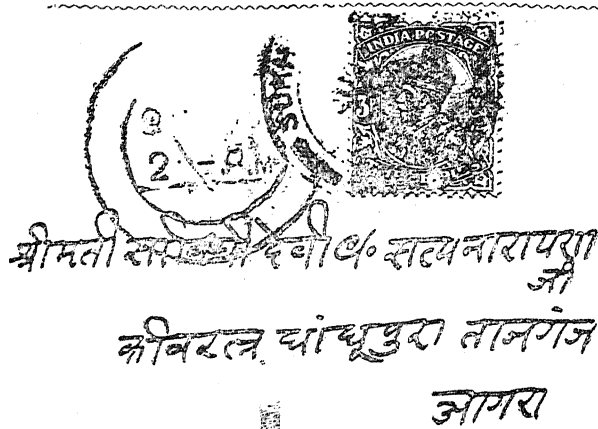 INDIA POSTAGE
3
2
श्रीमती देवी c/o सत्यनारायण
जी
कविरत्न धांधूपुरा ताजगंज
आगरा